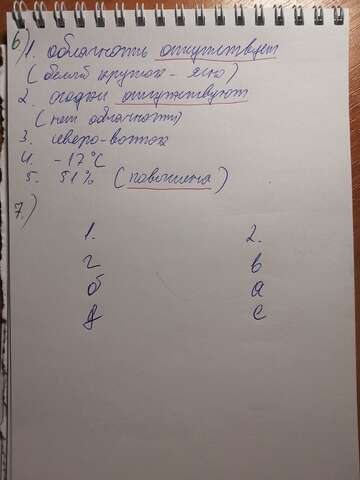 6) 1. облачность отсутствует
(белый кружок - ясно)
2. осадки отсутствуют
(нет облачности)
3. северо-восток
4. -17°C
5. 51% (повышена)
7.)
1. 2.
г в
б а
д е